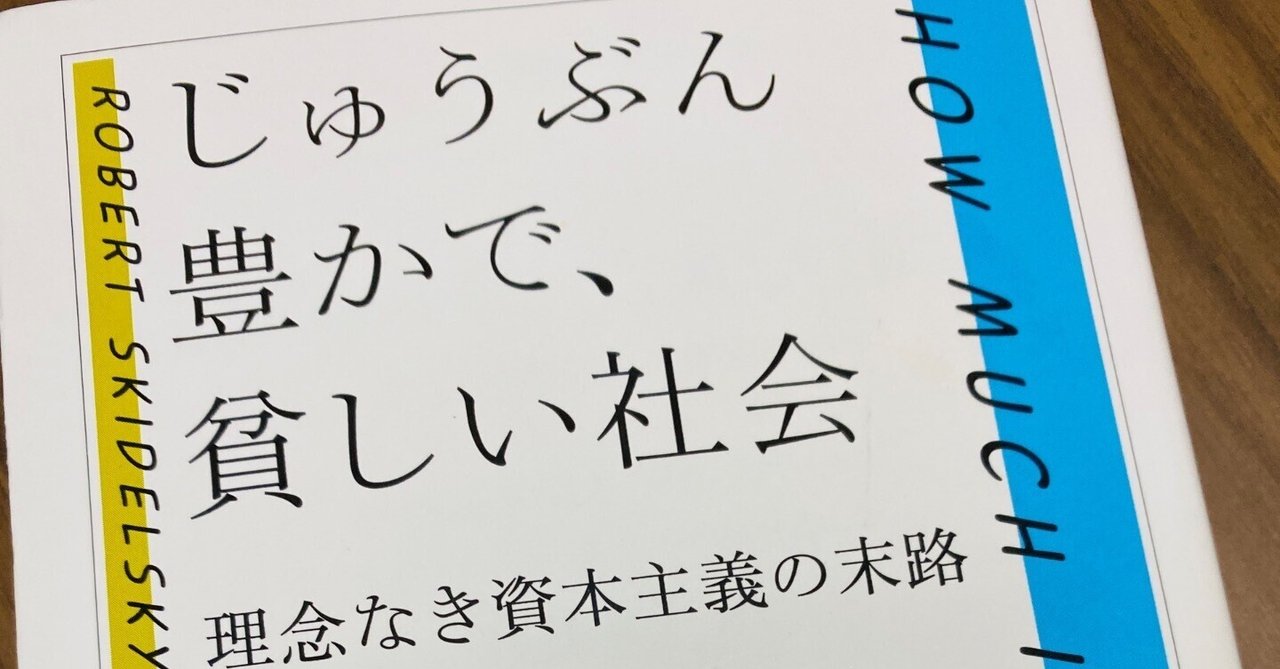 じゅうぶん
豊かで、
貧しい社会
理念なき資本主義の末路
ROBERT SKIDELSKY
HOW MUCH I